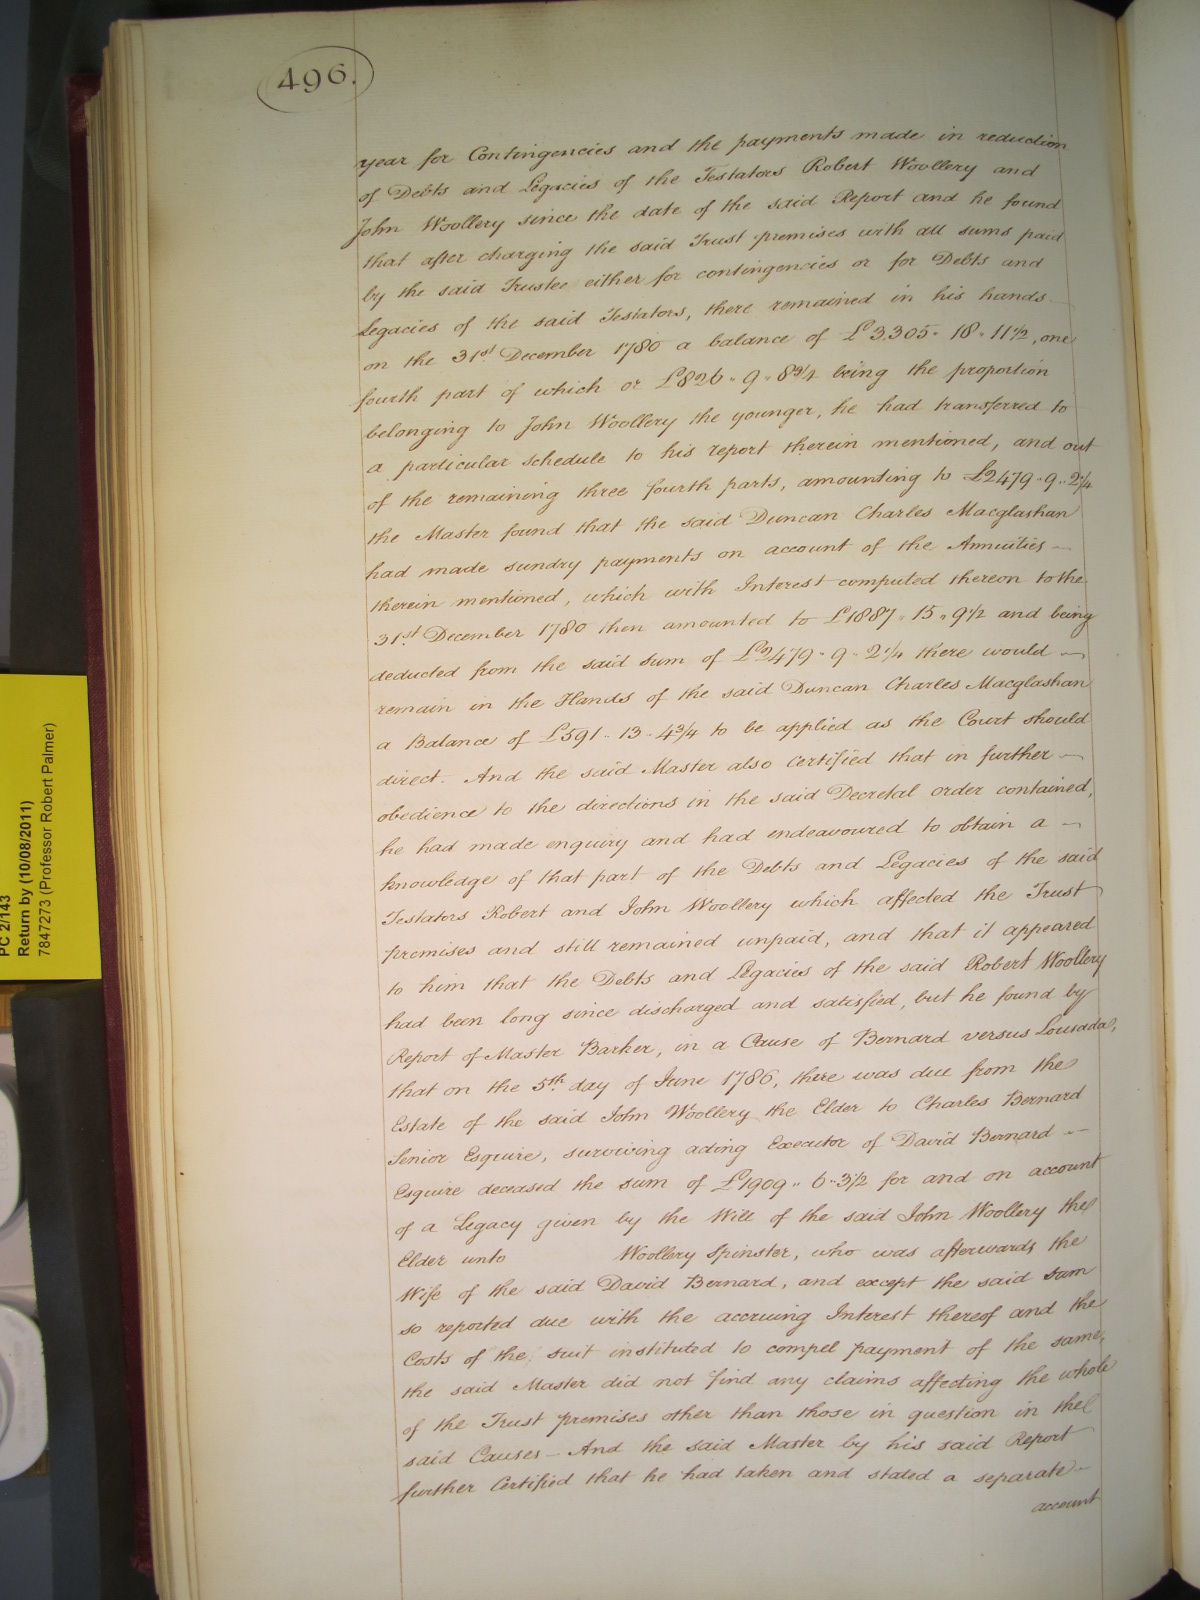 496.
year for Contingencies and the payments made in reduction
of Debts and Legacies of the Testators Robert Woollery and
John Woollery since the date of the said Report and he found
that after charging the said Trust premises with all sums paid
by the said Trustee either for contingencies or for Debts and
Legacies of the said Testators, there remained in his hands
on the 31st December 1780 a balance of £3,305 " 18 " 11½, one
fourth part of which or £826 " 9 " 8¾ being the proportion
belonging to John Woollery the younger, he had transferred to
a particular schedule to his report therein mentioned, and out
of the remaining three fourth parts, amounting to £2479 " 9 " 2¼
the Master found that the said Duncan Charles Macglashan
had made sundry payments on account of the Annuities —
therein mentioned, which with Interest computed thereon to the
31st December 1780 then amounted to £1887 " 15 " 9½ and being
deducted from the said sum of £2479 " 9 " 2¼ there would —
remain in the Hands of the said Duncan Charles Macglashan
a Balance of £591 " 13 " 4¾ to be applied as the Court should
direct. And the said Master also Certified that in further —
obedience to the directions in the said Decretal order contained,
he had made enquiry and had endeavoured to obtain a —
knowledge of that part of the Debts and Legacies of the said
Testators Robert and John Woollery which affected the Trust
premises and still remained unpaid, and that it appeared
to him that the Debts and Legacies of the said Robert Woollery
had been long since discharged and satisfied, but he found by
Report of Master Barker, in a Cause of Bernard versus Lousada,
that on the 5th day of June 1786, there was due from the
Estate of the said John Woollery the Elder to Charles Bernard
Senior Esquire, surviving acting Executor of David Bernard —
Esquire deceased the sum of £1909 " 6 " 3½ for and on account
of a Legacy given by the Will of the said John Woollery the
Elder unto Woollery Spinster, who was afterwards the
Wife of the said David Bernard, and except the said sum
so reported due with the accruing Interest thereof and the
Costs of the suit instituted to compel payment of the same,
the said Master did not find any claims affecting the whole
of the Trust premises other than those in question in the
said Causes — And the said Master by his said Report
further Certified that he had taken and stated a separate —
account
PC 2/143
Return by (10/08/2011)
7847273 (Professor Robert Palmer)